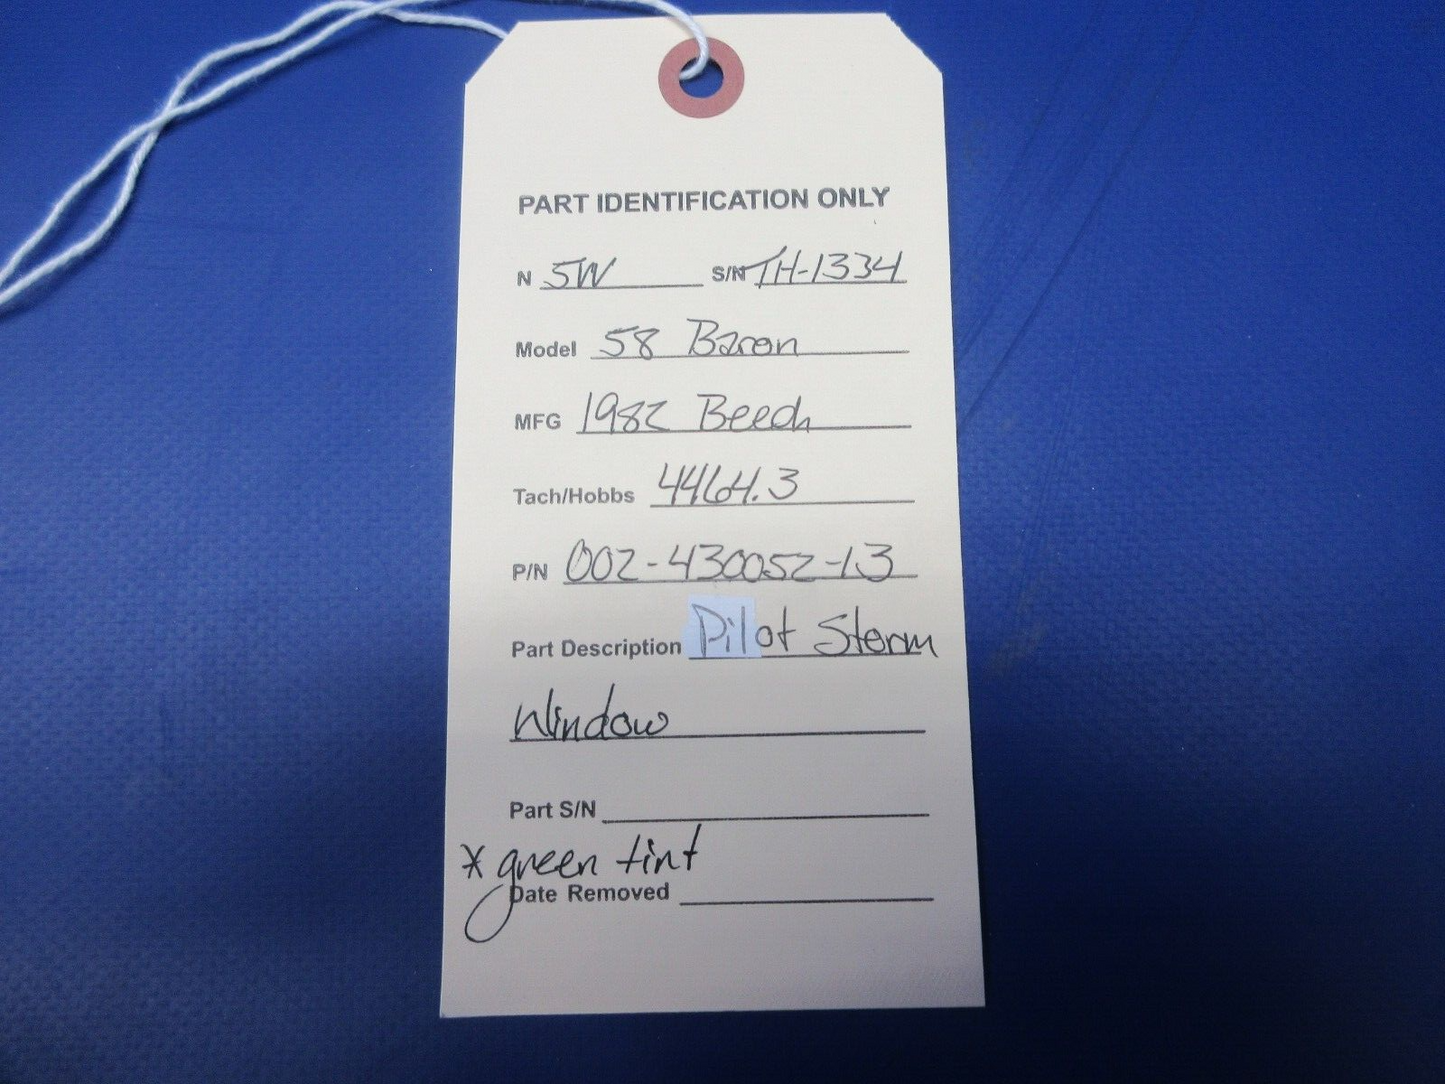 PART IDENTIFICATION ONLY
N 5W S/N TH-1334
Model 58 Baron
MFG 1982 Beech
Tach/Hobbs 4464.3
P/N 002-430052-13
Part Description Pilot Storm
Window
Part S/N
* green tint
Date Removed